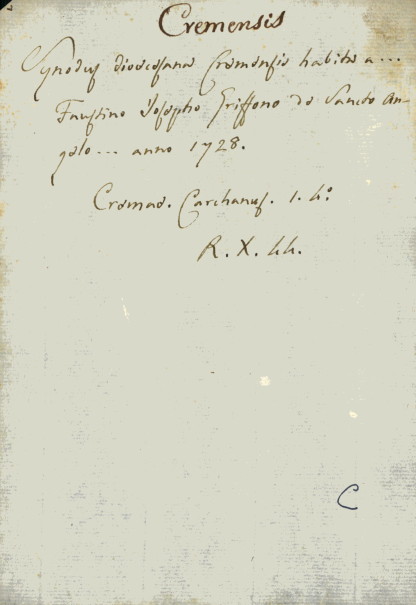 Cremensis
Synodus dioecesana Cremensis habita a...
Faustino Josepho Griffono de Sancto An-
gelo... anno 1728.
Cremae. Carchanus. 1. 4.º
R. X. 44.
C